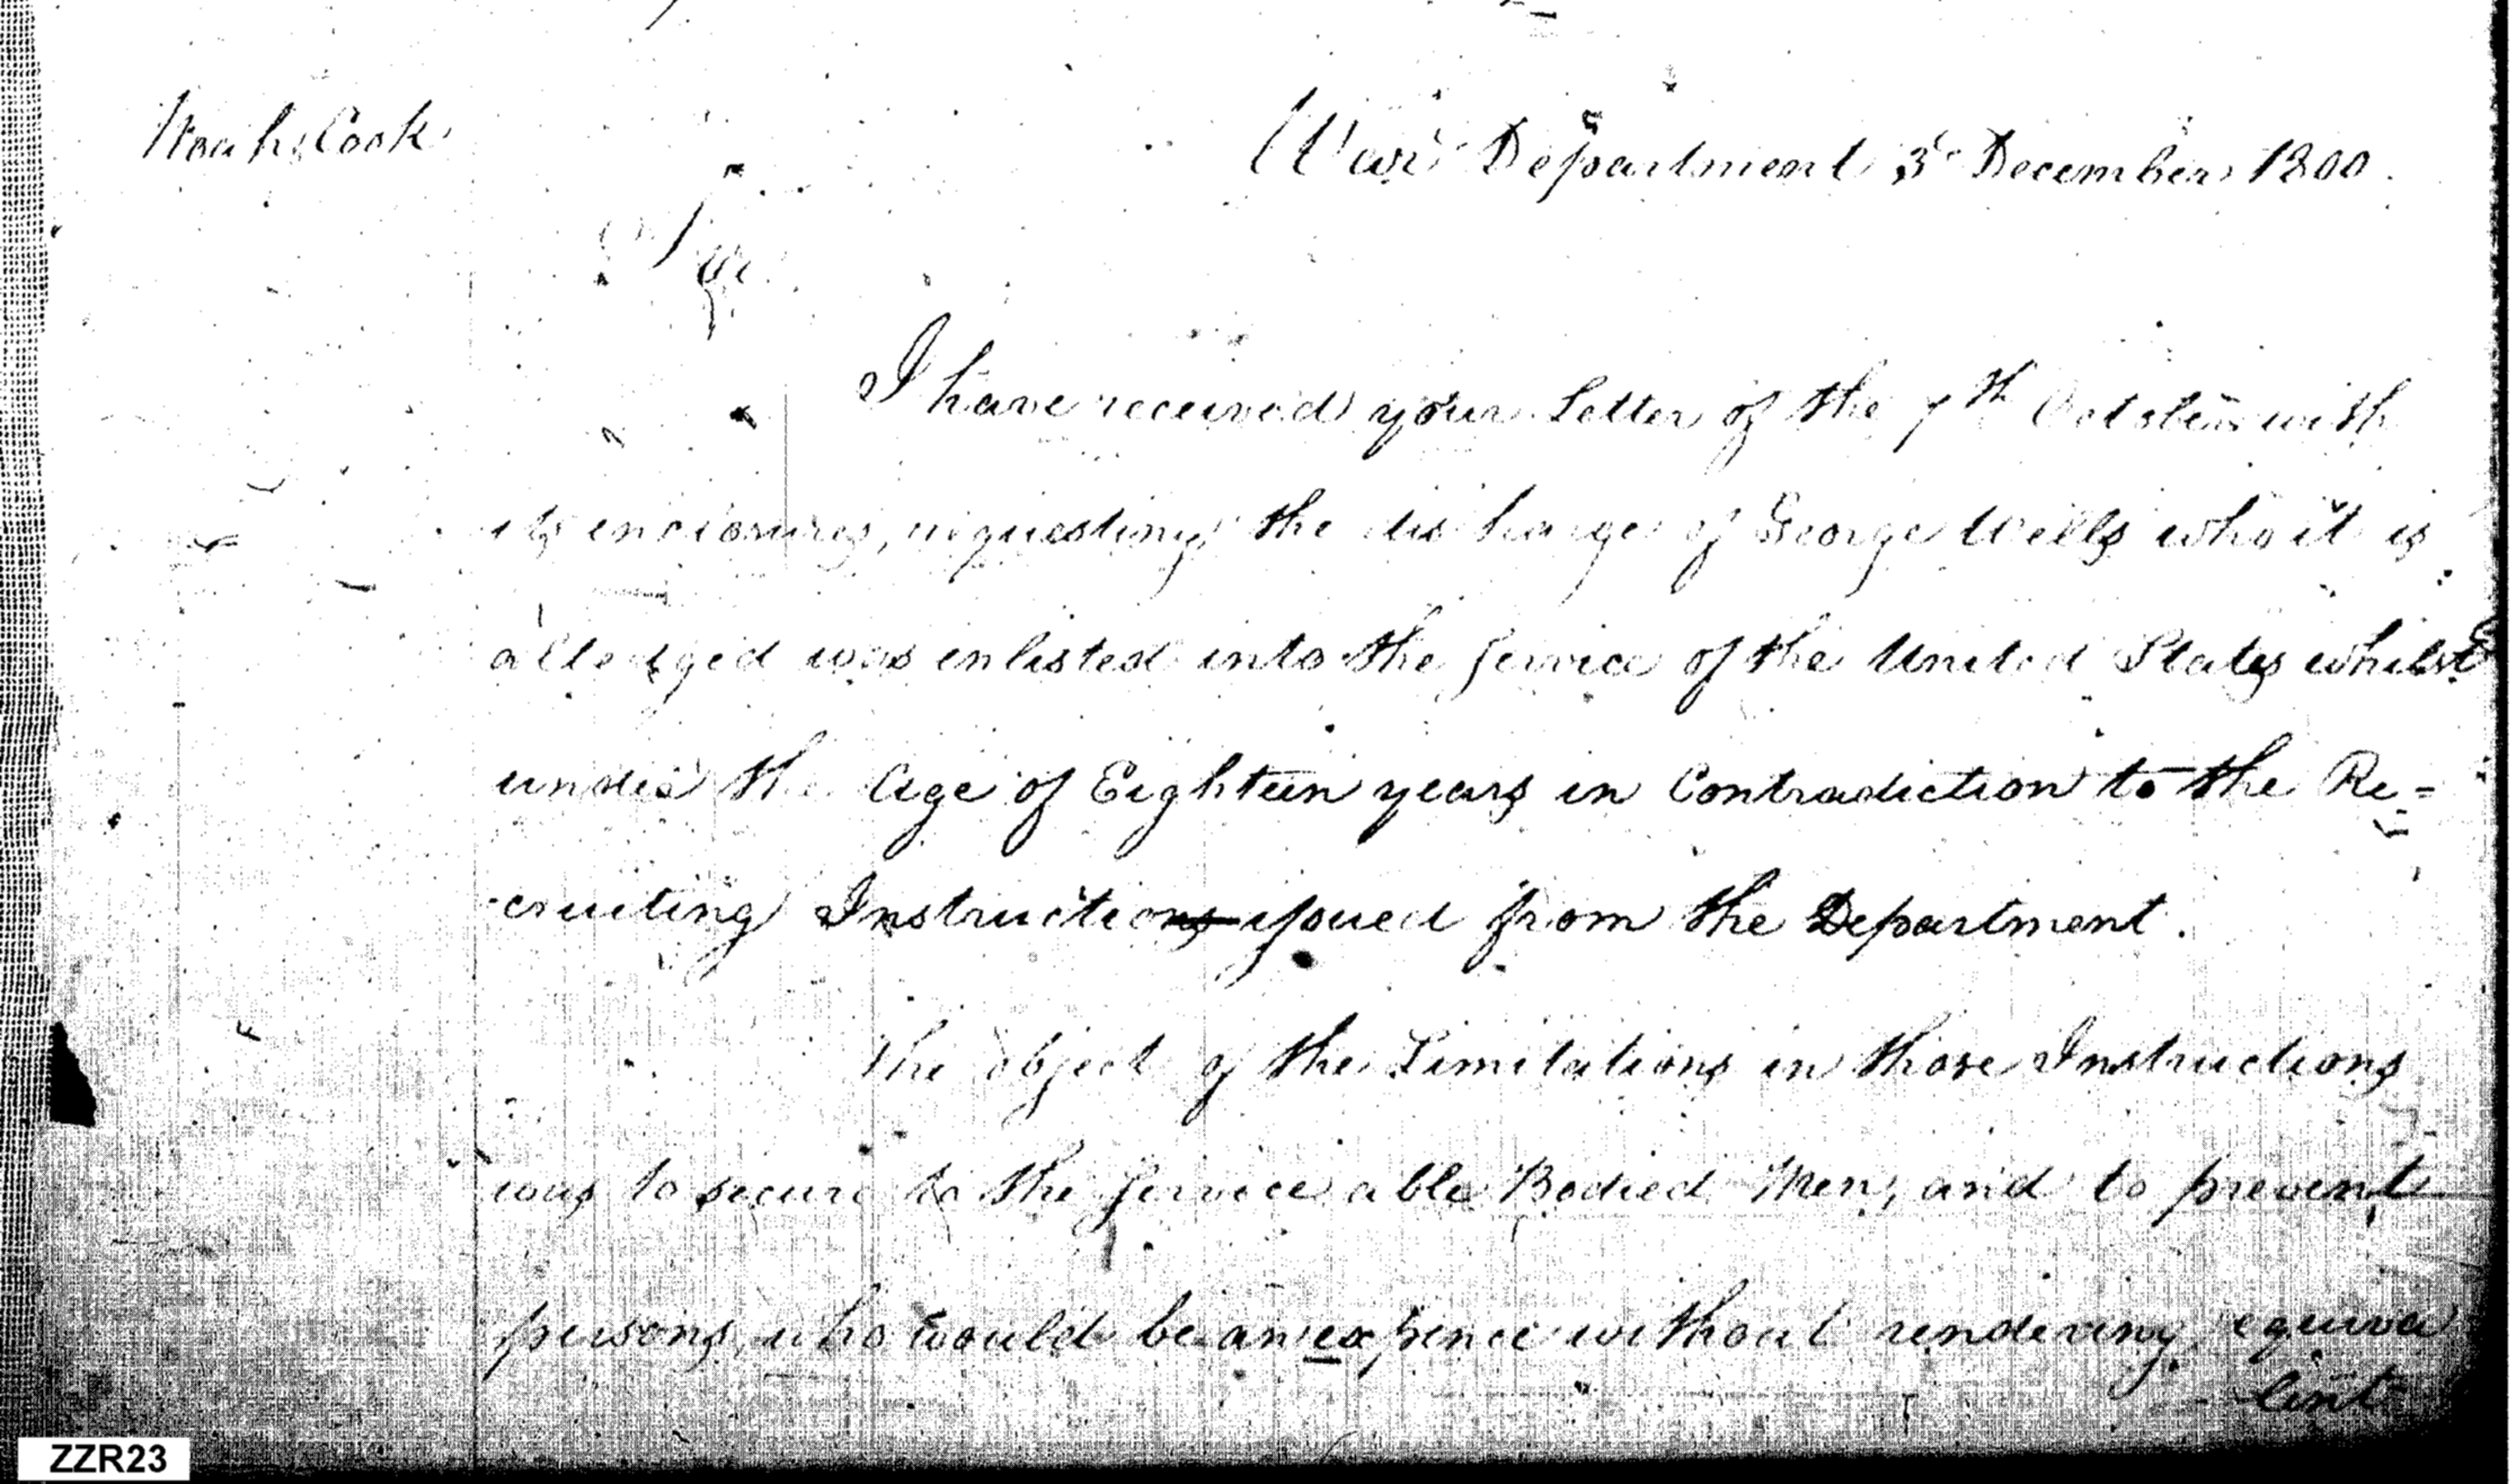 Noah Cook
War Department 3d December 1800.
Sir
I have received your Letter of the 7th October with
its enclosures, requesting the discharge of George Wells who it is
alledged was enlisted into the Service of the United States whilst
under the Age of Eighteen years in Contradiction to the Re=
-cruiting Instructions issued from the Department.
The object of the Limitations in those Instructions
was to secure to the Service able Bodied Men, and to prevent
persons, who would be an expence without rendering equiva
lent
ZZR23